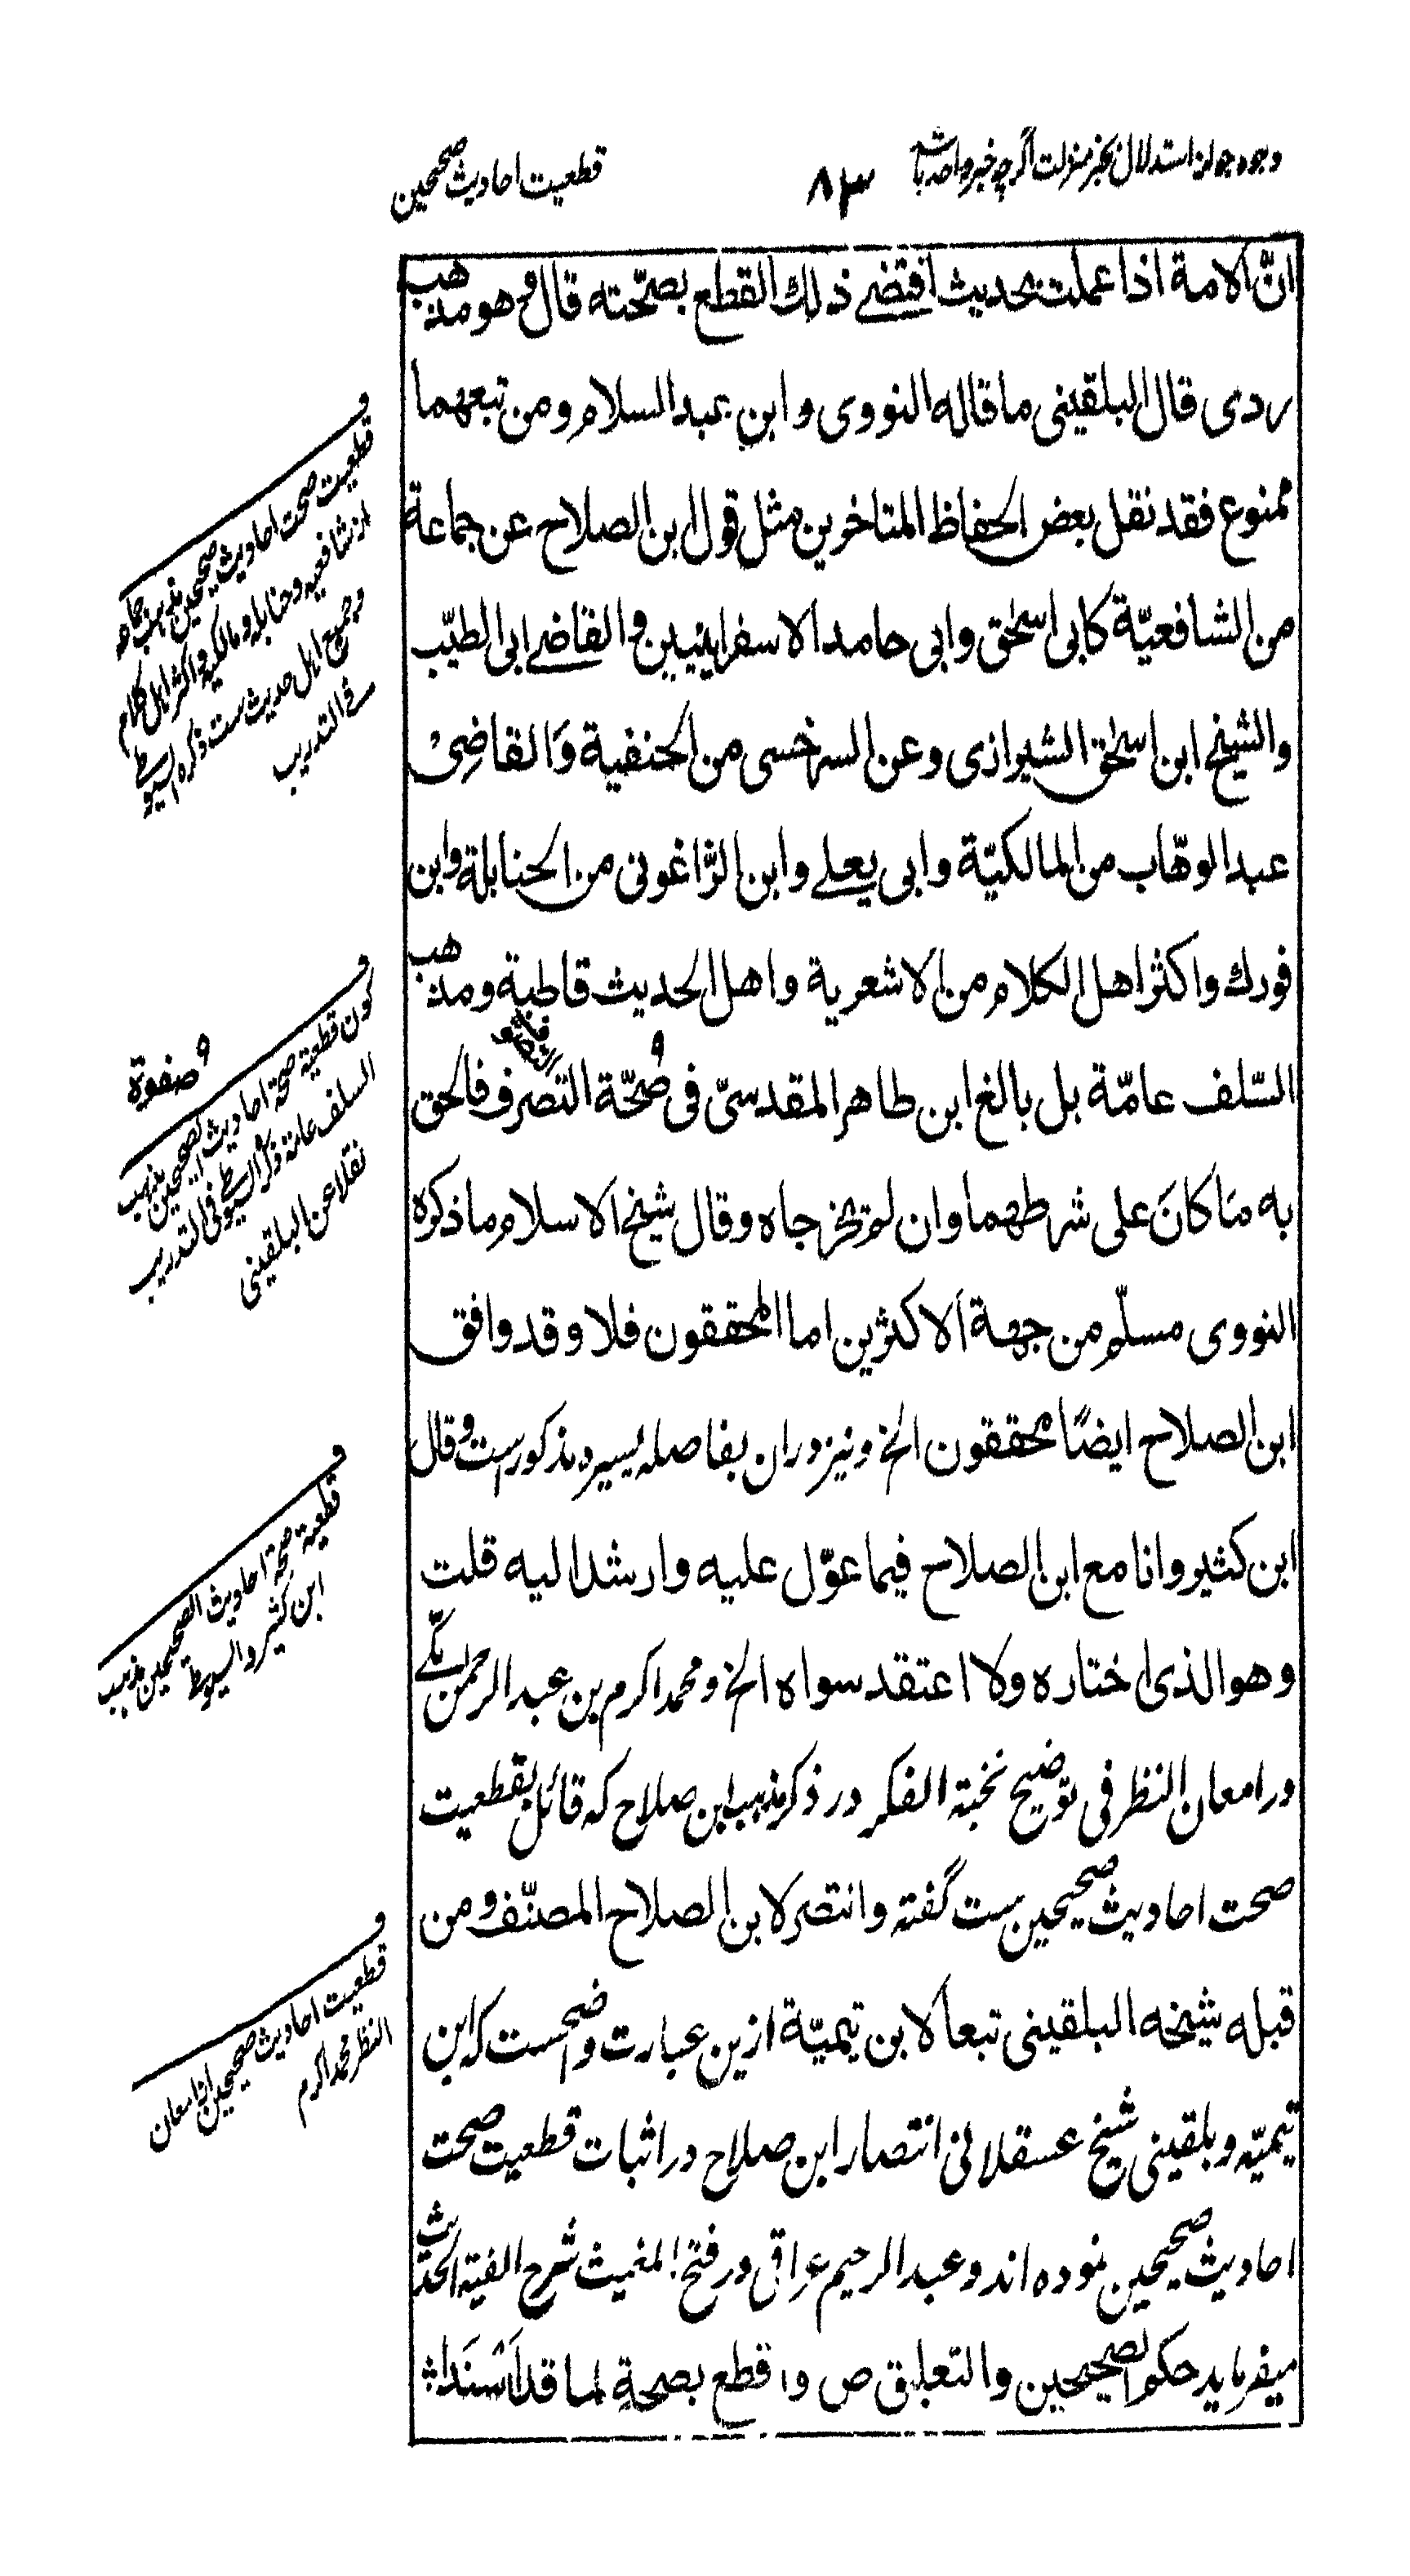 وجوه جواز استدلال بخبر منزلت اگرچه خبر واحد باشد
۸۳
قطعیت احادیث صحیحین
انّ الامة اذا عملت بحدیث اقتضے ذلك القطع بصحّته قال و هو مذهب
ردی قال البلقینی ما قاله النووی و ابن عبد السلام و من تبعهما
ممنوع فقد نقل بعض الحفاظ المتاخرین مثل قول ابن الصلاح عن جماعة
من الشافعیّة کابی اسحٰق وابی حامد الاسفراینیین و القاضے ابی الطیّب
والشیخ ابن اسحٰق الشیرازی و عن السرخسی من الحنفیة وَالقاضِیْ
عبد الوهّاب من المالکیّة وابی یعلے وابن الزّاغونی من الحنابلة وابن
فورك واکثر اهل الکلام من الاشعریة واهل الحدیث قاطبة و مذهب
السّلف عامّة بل بالغ ابن طاهر المقدسیّ فی صُحّة التصرف فالحق
به مَا کانَ علی شرطهما وان لم یخرجاه وقال شیخ الاسلام ما ذکره
النووی مسلّم من جهة الاکثرین اما المحققون فلا وقد وافق
ابن الصلاح ایضًا محققون الخ و نیز دران بفاصله یسیره مذکورست و قال
ابن کثیر وانا مع ابن الصلاح فیما عوّل علیه وارشد الیه قلت
وهو الذی اختاره ولا اعتقد سواه الخ و محمد اکرم بن عبد الرحمن مکّے
در امعان النظر فی توضیح نخبة الفکر در ذکر مذهب ابن صلاح که قائل بقطعیت
صحت احادیث صحیحین ست گفته وانتصر لابن الصلاح المصنّف و من
قبله شیخه البلقینی تبعا لابن تیمیّة ازین عبارت واضحست که ابن
تیمیّه و بلقینی شیخ عسقلانی انتصار ابن صلاح در اثبات قطعیت صحت
احادیث صحیحین نموده اند و عبد الرحیم عراقی در فتح المغیث شرح الفیة الحدیث
میفرماید حکم الصحیحین والتعلیق ص واقطع بصحةٍ لما قد اَسْنَدَا ش
و
قطعیت صحت احادیث صحیحین مذهب جماعه
از شافعیه و حنابله و مالکیه و اکثر اهل کلام
و جمیع اهل حدیث ست ذکره السیوطے
فے التدریب
و صفوة
و
کون قطعیة صحة احادیث الصحیحین مذهب
السلف عامة ذکره السیوطے فی التدریب
نقلا عن البلقینی
و
قطعیة صحة احادیث الصحیحین مذهب
ابن کثیر و السیوطے
و
قطعیت احادیث صحیحین از امعان
النظر محمد اکرم